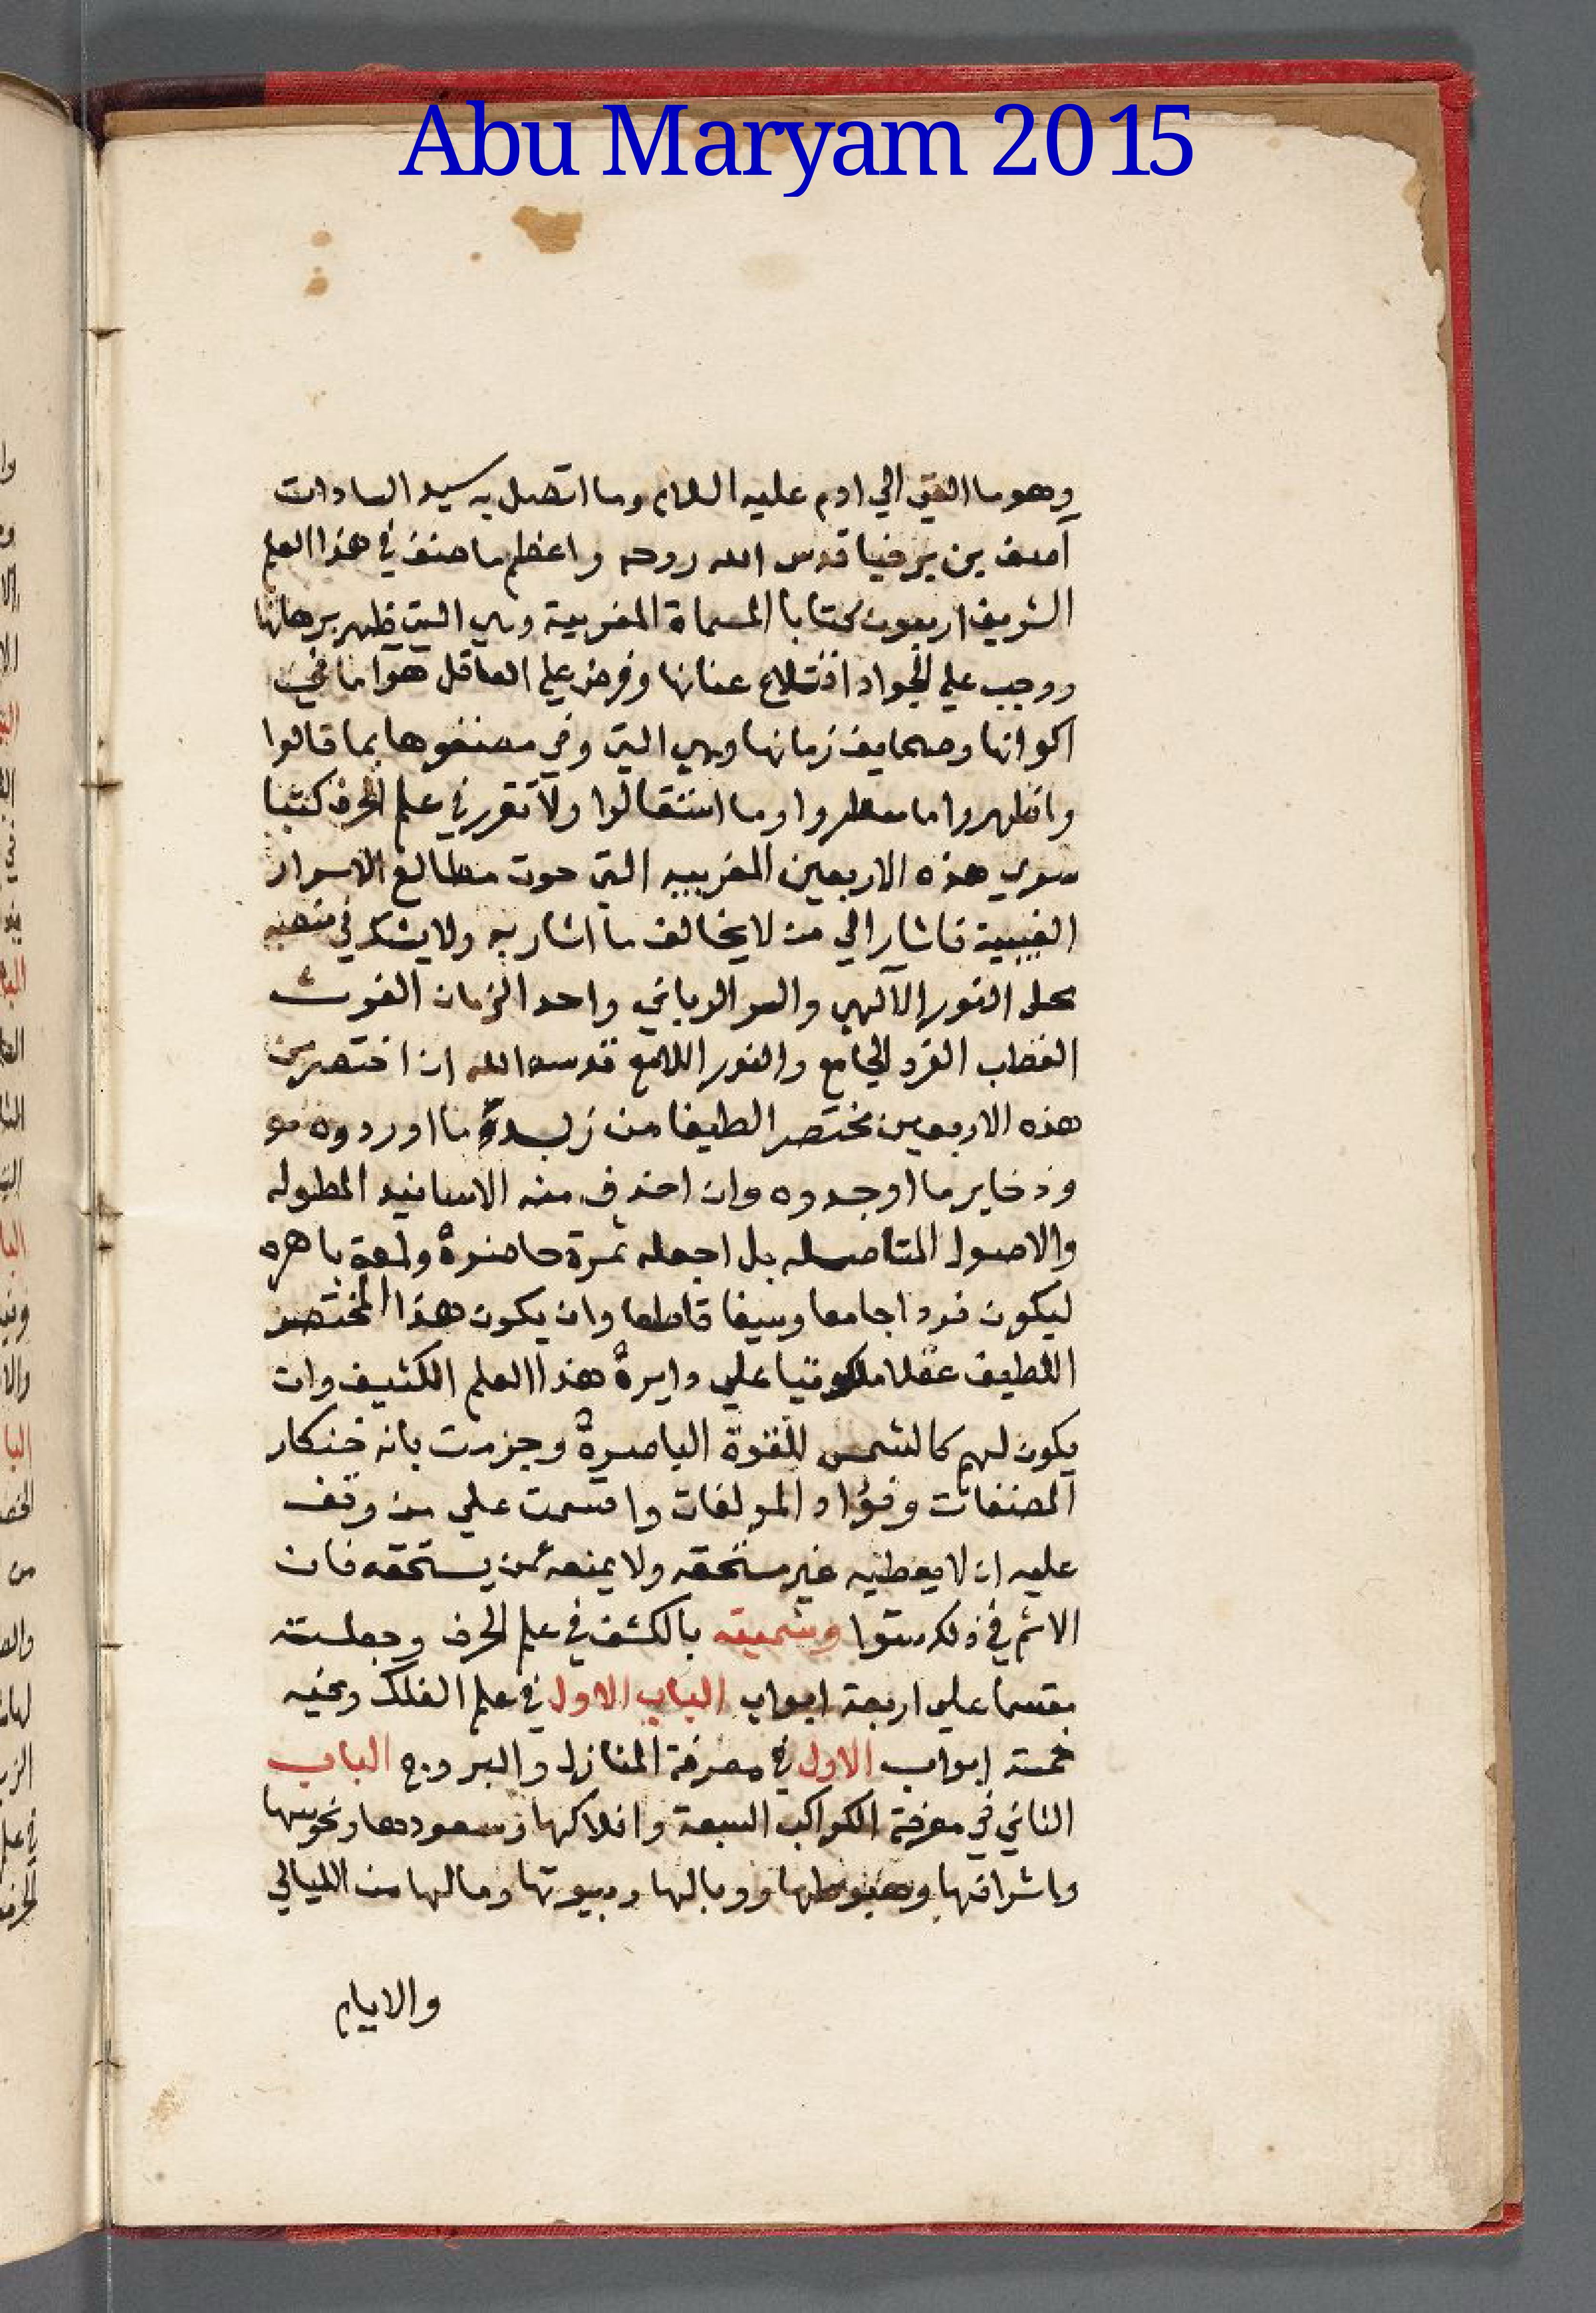 Abu Maryam 2015
وهو ما القي الي ادم عليه السلام وما اتصل به سيد السادات
آصف بن برخيا قدس الله روحه واعظم ما صنف في هذا العلم
الشريف اربعون كتابا المسماة المغربية وهي التي ظهر برهانها
ووجب علي الجواد عنانها وفرض علي العاقل هوا ما في
اكوانها وصحايف زمانها وهي التي وفي مصنفوها بما قالوا
واظهروا ما سطروا وما استقالوا ولا تقرر في علم الحرف كتبا
سوي هذه الاربعين المغربيه التي حوت مطالع الاسرار
الغيبية فاشار الي من لا يخالف ما اشار به ولا يشك في
محل النور الآلهي والسر الرباني واحد الزمان الغوث
القطاب الفرد الجامع والنور اللامع قدسه الله ان اختصر من
هذه الاربعين مختصر الطيفا من زبدة ما اوردوه
وذخاير ما اوجدوه وان احذف منه الاسانيد المطوله
والاصول المتاصله بل اجعله ثمرة حاضرة ولمعة باهره
ليكون فردا جامعا وسيفا قاطعا وان يكون هذا المختصر
اللطيف عقلا ملكوتيا علي دايرة هذا العلم الكثيف وان
يكون لهم كالشمس للقوة الباصرة وجزمت بانه خنكار
المصنفات وفؤاد المولفات واقسمت علي من وقف
عليه ان لا يعطيه غير مستحقه ولا يمنعه عمن يستحقه فان
الاثم في ذلك سوا وسميته بالكشف في علم الحرف وجعلته
مقسما علي اربعة ابواب الباب الاول في علم الفلك وفيه
خمسة ابواب الاول في معرفة المنازل والبروج الباب
الثاني في معرفة الكواكب السبعة وافلاكها وسعودها ونحوسها
واشرافها وهبوطها ووبالها وبيوتها وما لها من الليالي
والايام